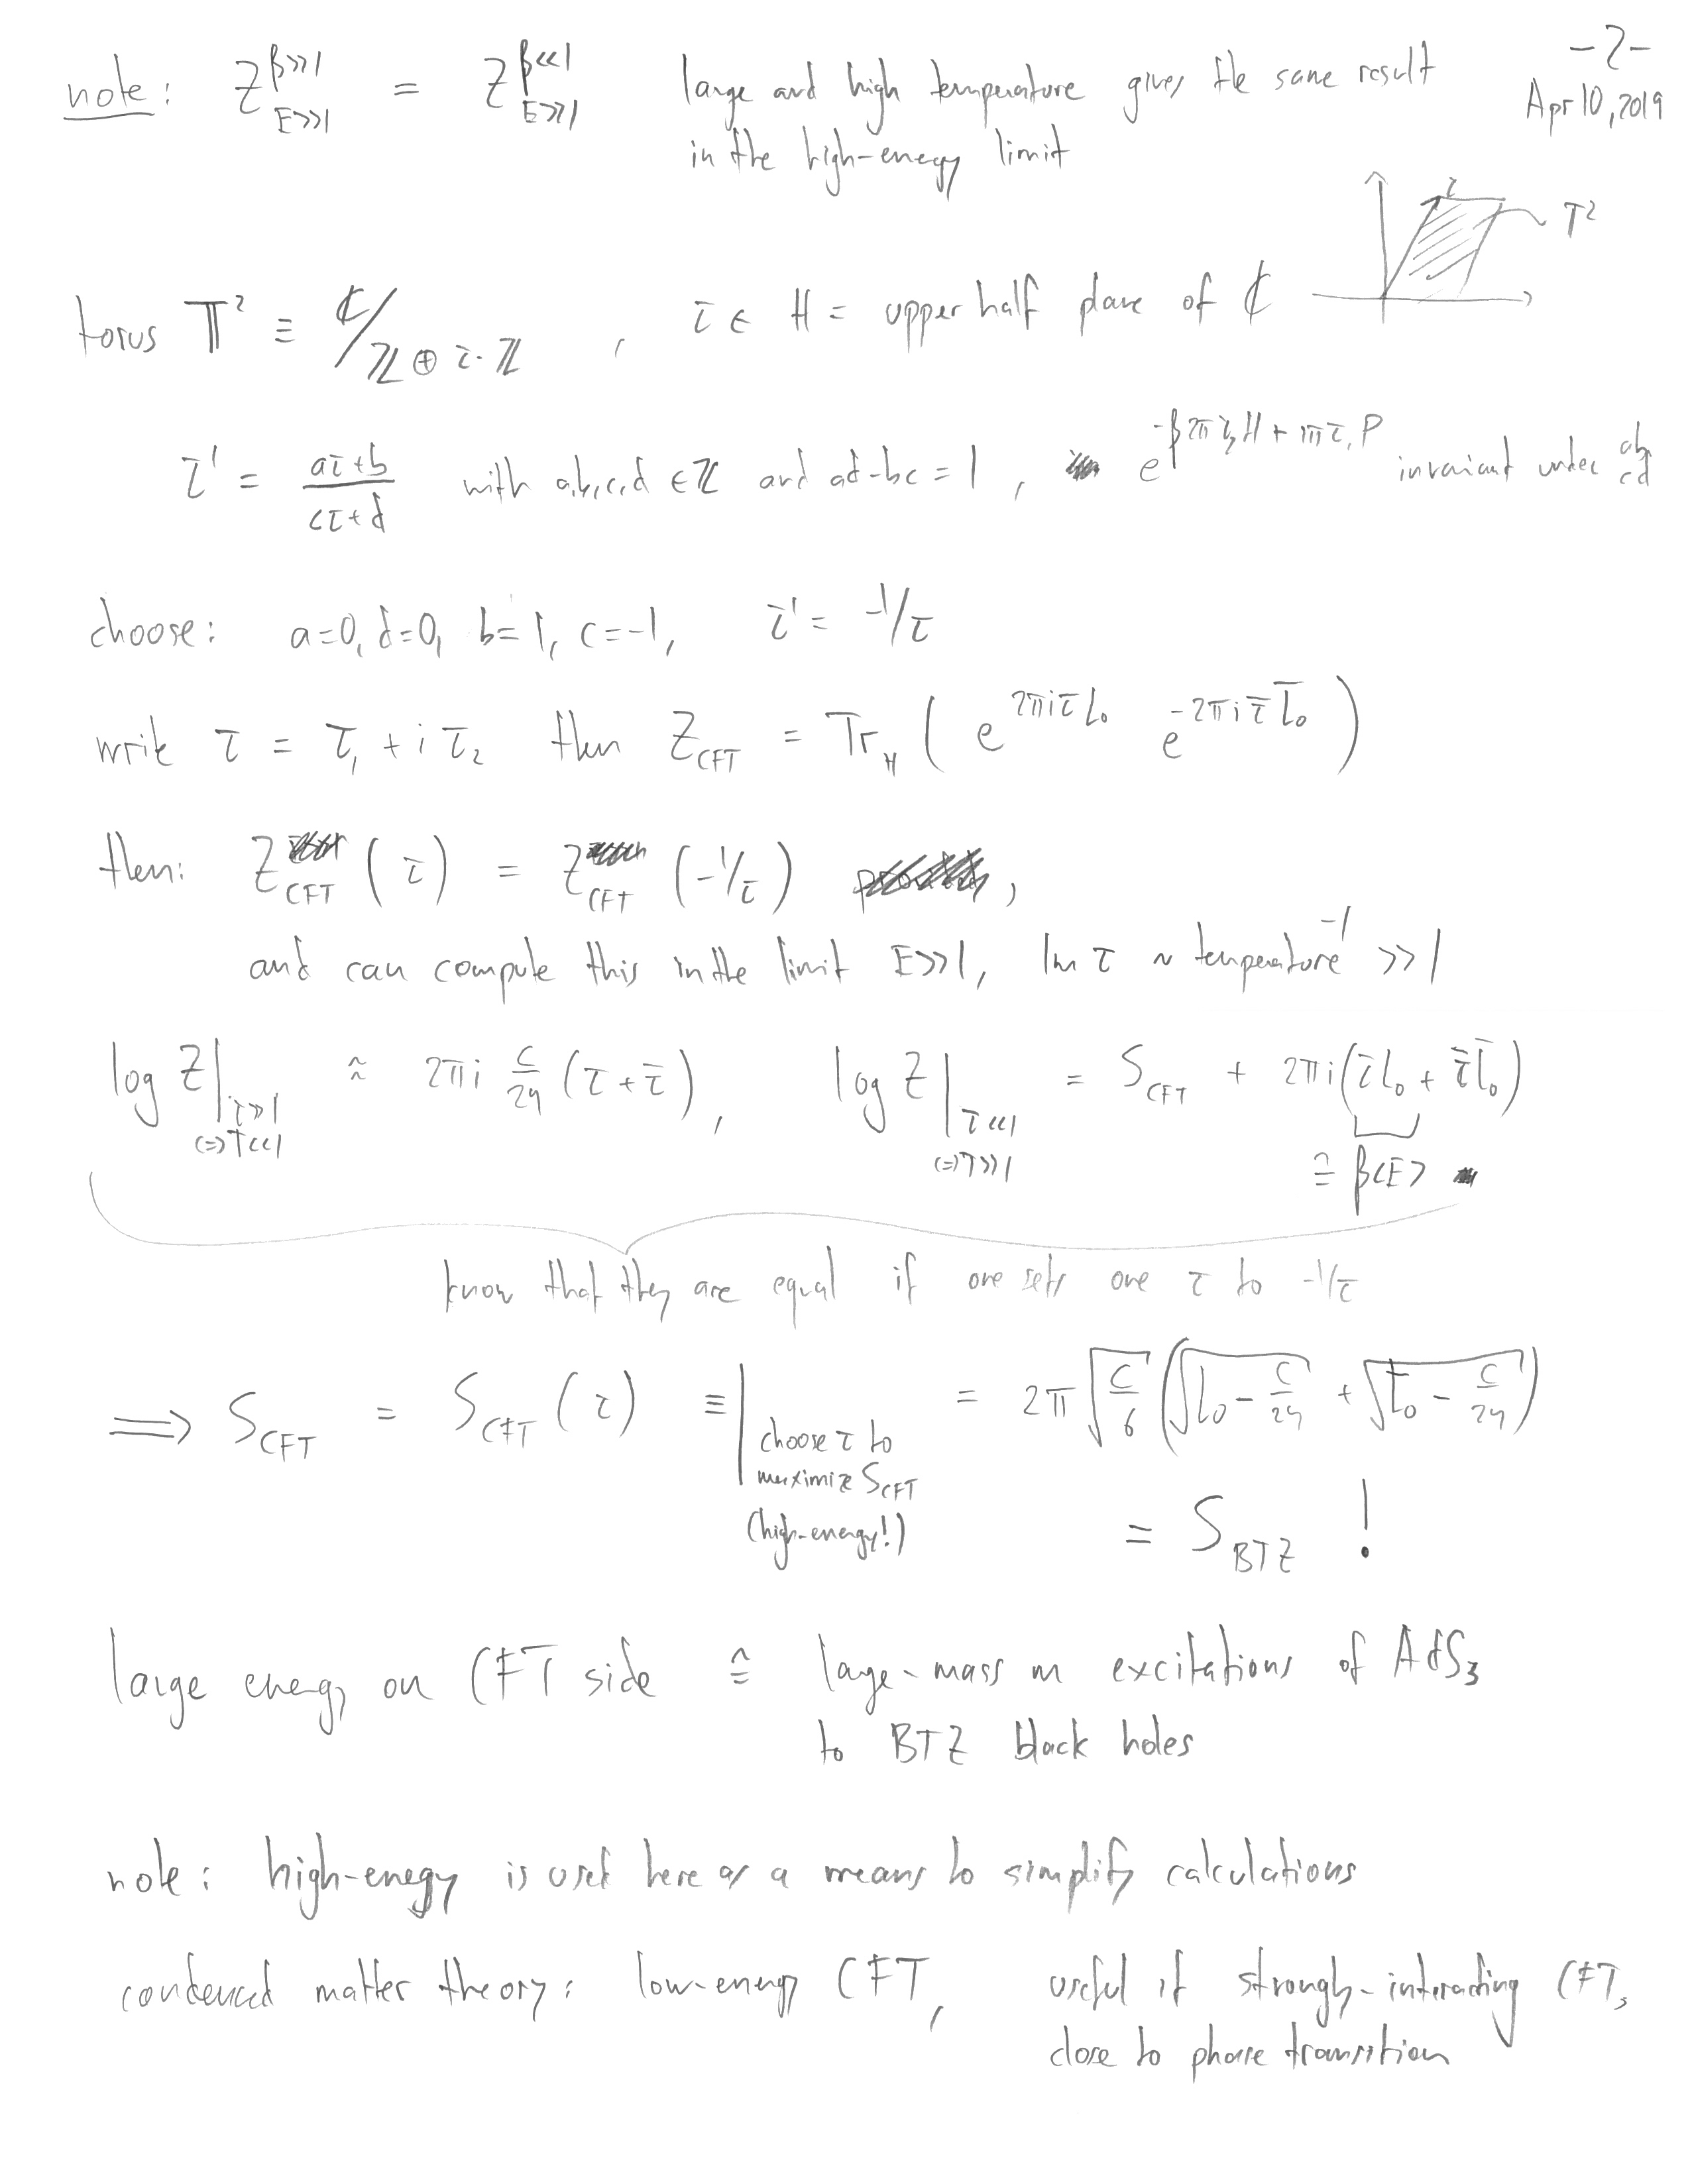 -2-
Apr 10, 2019
note: Z^{β>>1}_{E>>1} = Z^{β<<1}_{E>>1} large and high temperature gives the same result
in the high-energy limit
τ
T²
torus 𝕋² ≡ ℂ/ℤ⊕τ·ℤ , τ ∈ H = upper half plane of ℂ
τ' = (aτ+b)/(cτ+d) with a,b,c,d ∈ ℤ and ad-bc = 1, invariant under ab
cd
choose: a=0, d=0, b=1, c=-1, τ' = -1/τ
write τ = τ₁ + i τ₂ then Z_{CFT} = Tr_H ( e^{2πiτL₀} e^{-2πi τ̄ L̄₀} )
then: Z_{CFT} (τ) = Z_{CFT} (-1/τ) ,
and can compute this in the limit E>>1, Im τ ~ temperature^{-1} >> 1
log Z|_{τ>>1} ≈ 2πi c/24 (τ+τ̄), log Z|_{τ<<1} = S_{CFT} + 2πi(τL₀ + τ̄L̄₀)
⇔ T<<1 ⇔ T>>1 ≙ β<E>
know that they are equal if one sets one τ to -1/τ
⟹ S_{CFT} = S_{CFT} (τ) ≡| = 2π √(c/6) (√(L₀ - c/24) + √(L̄₀ - c/24))
choose τ to
maximize S_{CFT}
(high-energy!)
= S_{BTZ} !
large energy on CFT side ≙ large-mass m excitations of AdS₃
to BTZ black holes
note: high-energy is used here as a means to simplify calculations
condenced matter theory: low-energy CFT, useful if strongly-interacting CFT,
close to phase transition